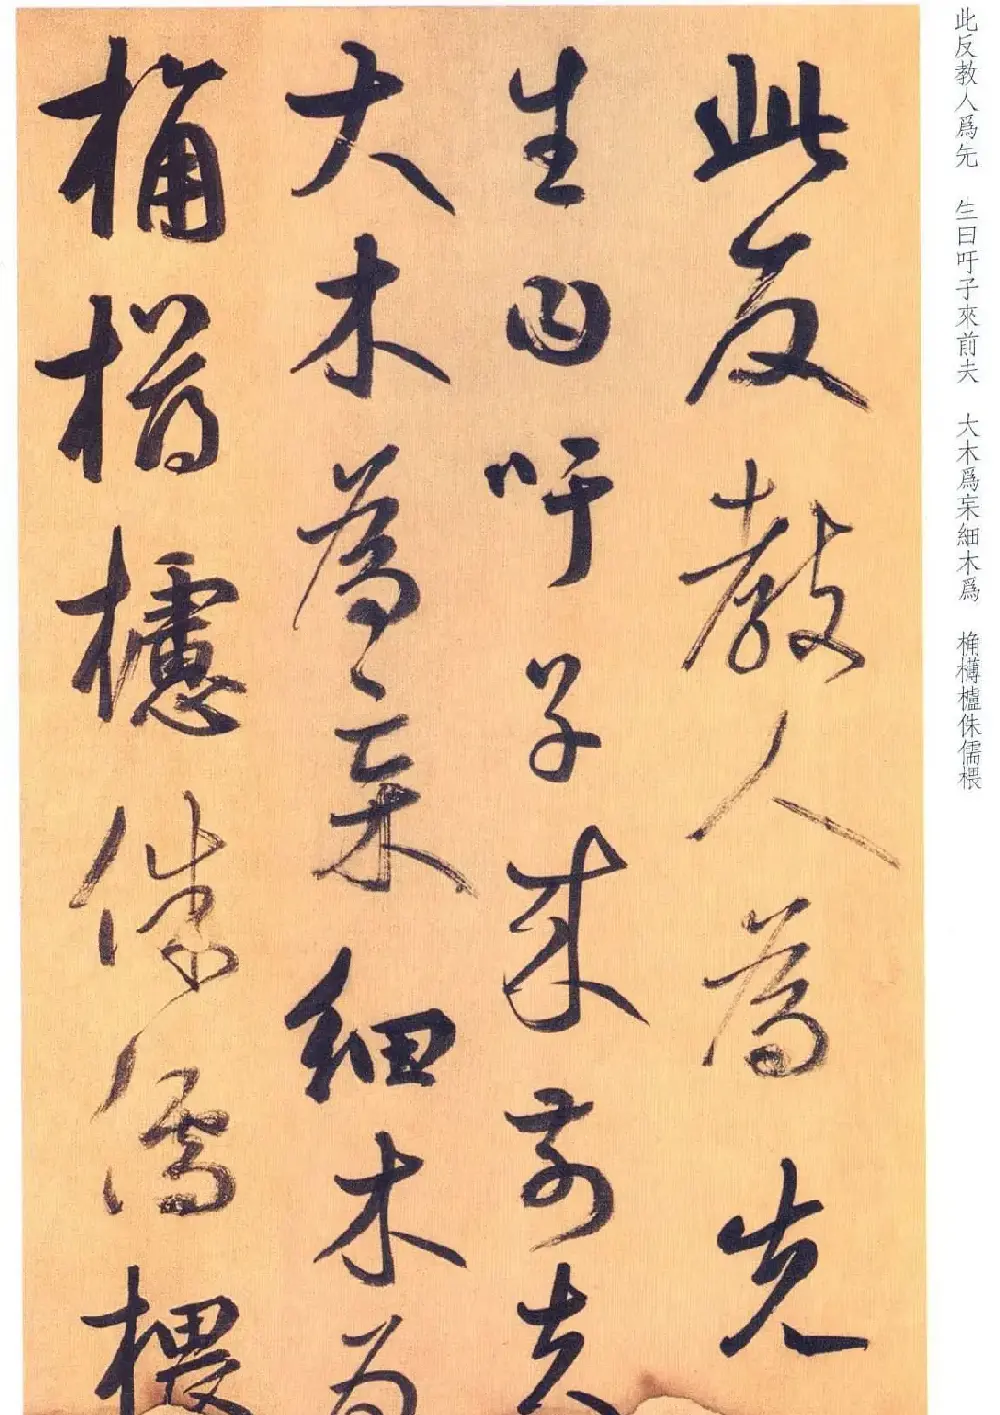 此反教人為先
生曰吁子来前夫
大木為杗細木為
桷欂櫨侏儒椳
此反教人爲先　生曰吁子來前夫　大木爲杗細木爲　桷欂櫨侏儒椳